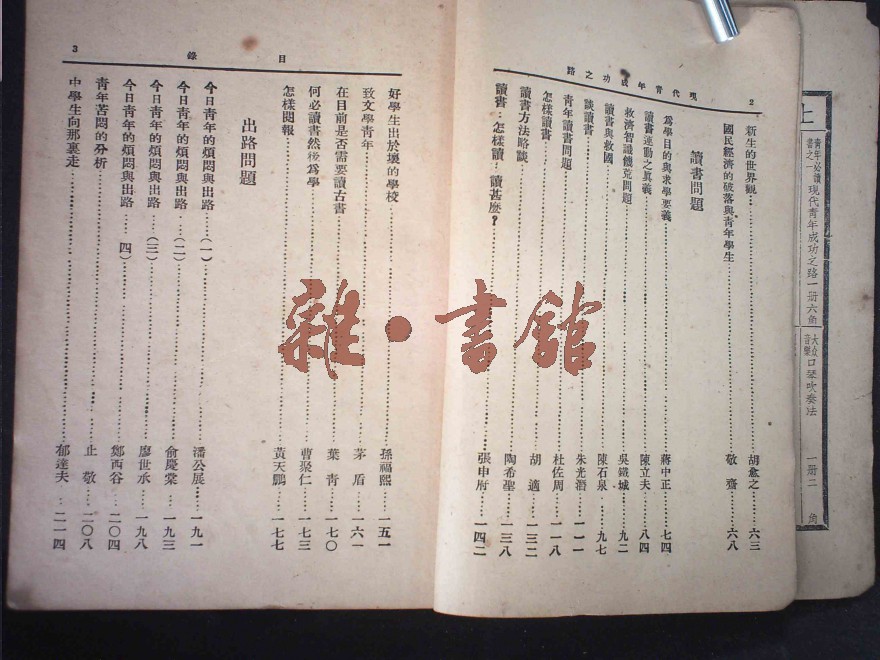 上
青年必讀書之一 現代青年成功之路 一册六角
大众音樂 口琴吹奏法 一册二角
現代青年成功之路 2
新生的世界觀 胡愈之 六三
國民經濟的破落與青年學生 敬齋 六八
讀書問題
爲學目的與求學要義 蔣中正 七四
讀書運動之眞義 陳立夫 八四
救濟智識饑荒問題 吳鐵城 九二
讀書與救國 陳石泉 九七
談讀書 朱光潛 一一一
青年讀書問題 杜佐周 一一八
怎樣讀書 胡適 一三二
讀書方法略談 陶希聖 一三八
讀書：怎樣讀·讀甚麽？ 張申府 一四二
目錄 3
好學生出於壞的學校 孫福熙 一五一
致文學青年 茅盾 一六一
在目前是否需要讀古書 葉青 一七〇
何必讀書然後爲學 曹聚仁 一七三
怎樣閱報 黃天鵬 一七七
出路問題
今日青年的煩悶與出路（一） 潘公展 一九一
今日青年的煩悶與出路（二） 俞慶棠 一九三
今日青年的煩悶與出路（三） 廖世承 一九八
今日青年的煩悶與出路（四） 鄭西谷 二〇四
青年苦悶的分析 止敬 二〇八
中學生向那裏走 郁達夫 二一四
雜·書館